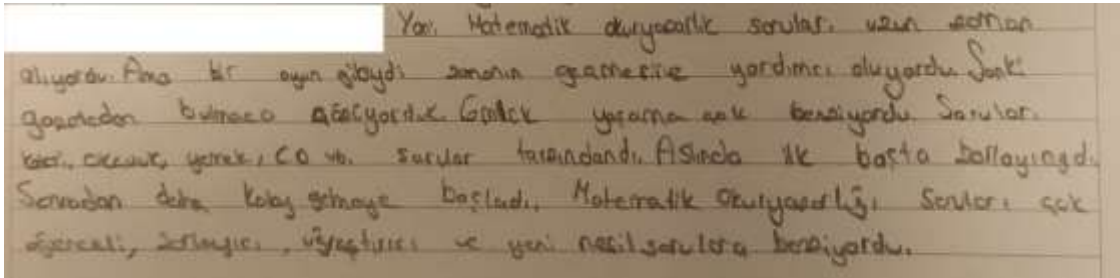 Yani Matematik okuryazarlık soruları uzun zaman
alıyordu. Ama bir oyun gibiydi zamanın geçmesine yardımcı oluyordu. Sanki
gazeteden bulmaca çözüyorduk. Gerçek yaşama çok benziyordu. Sorular
yemek, CD vb. sorular tarzındandı. Aslında ilk başta zorlayıcıydı.
Sonradan daha kolay gelmeye başladı. Matematik Okuryazarlığı Soruları çok
eğlenceli, zorlayıcı, uğraştırıcı ve yeni nesil sorulara benziyordu.